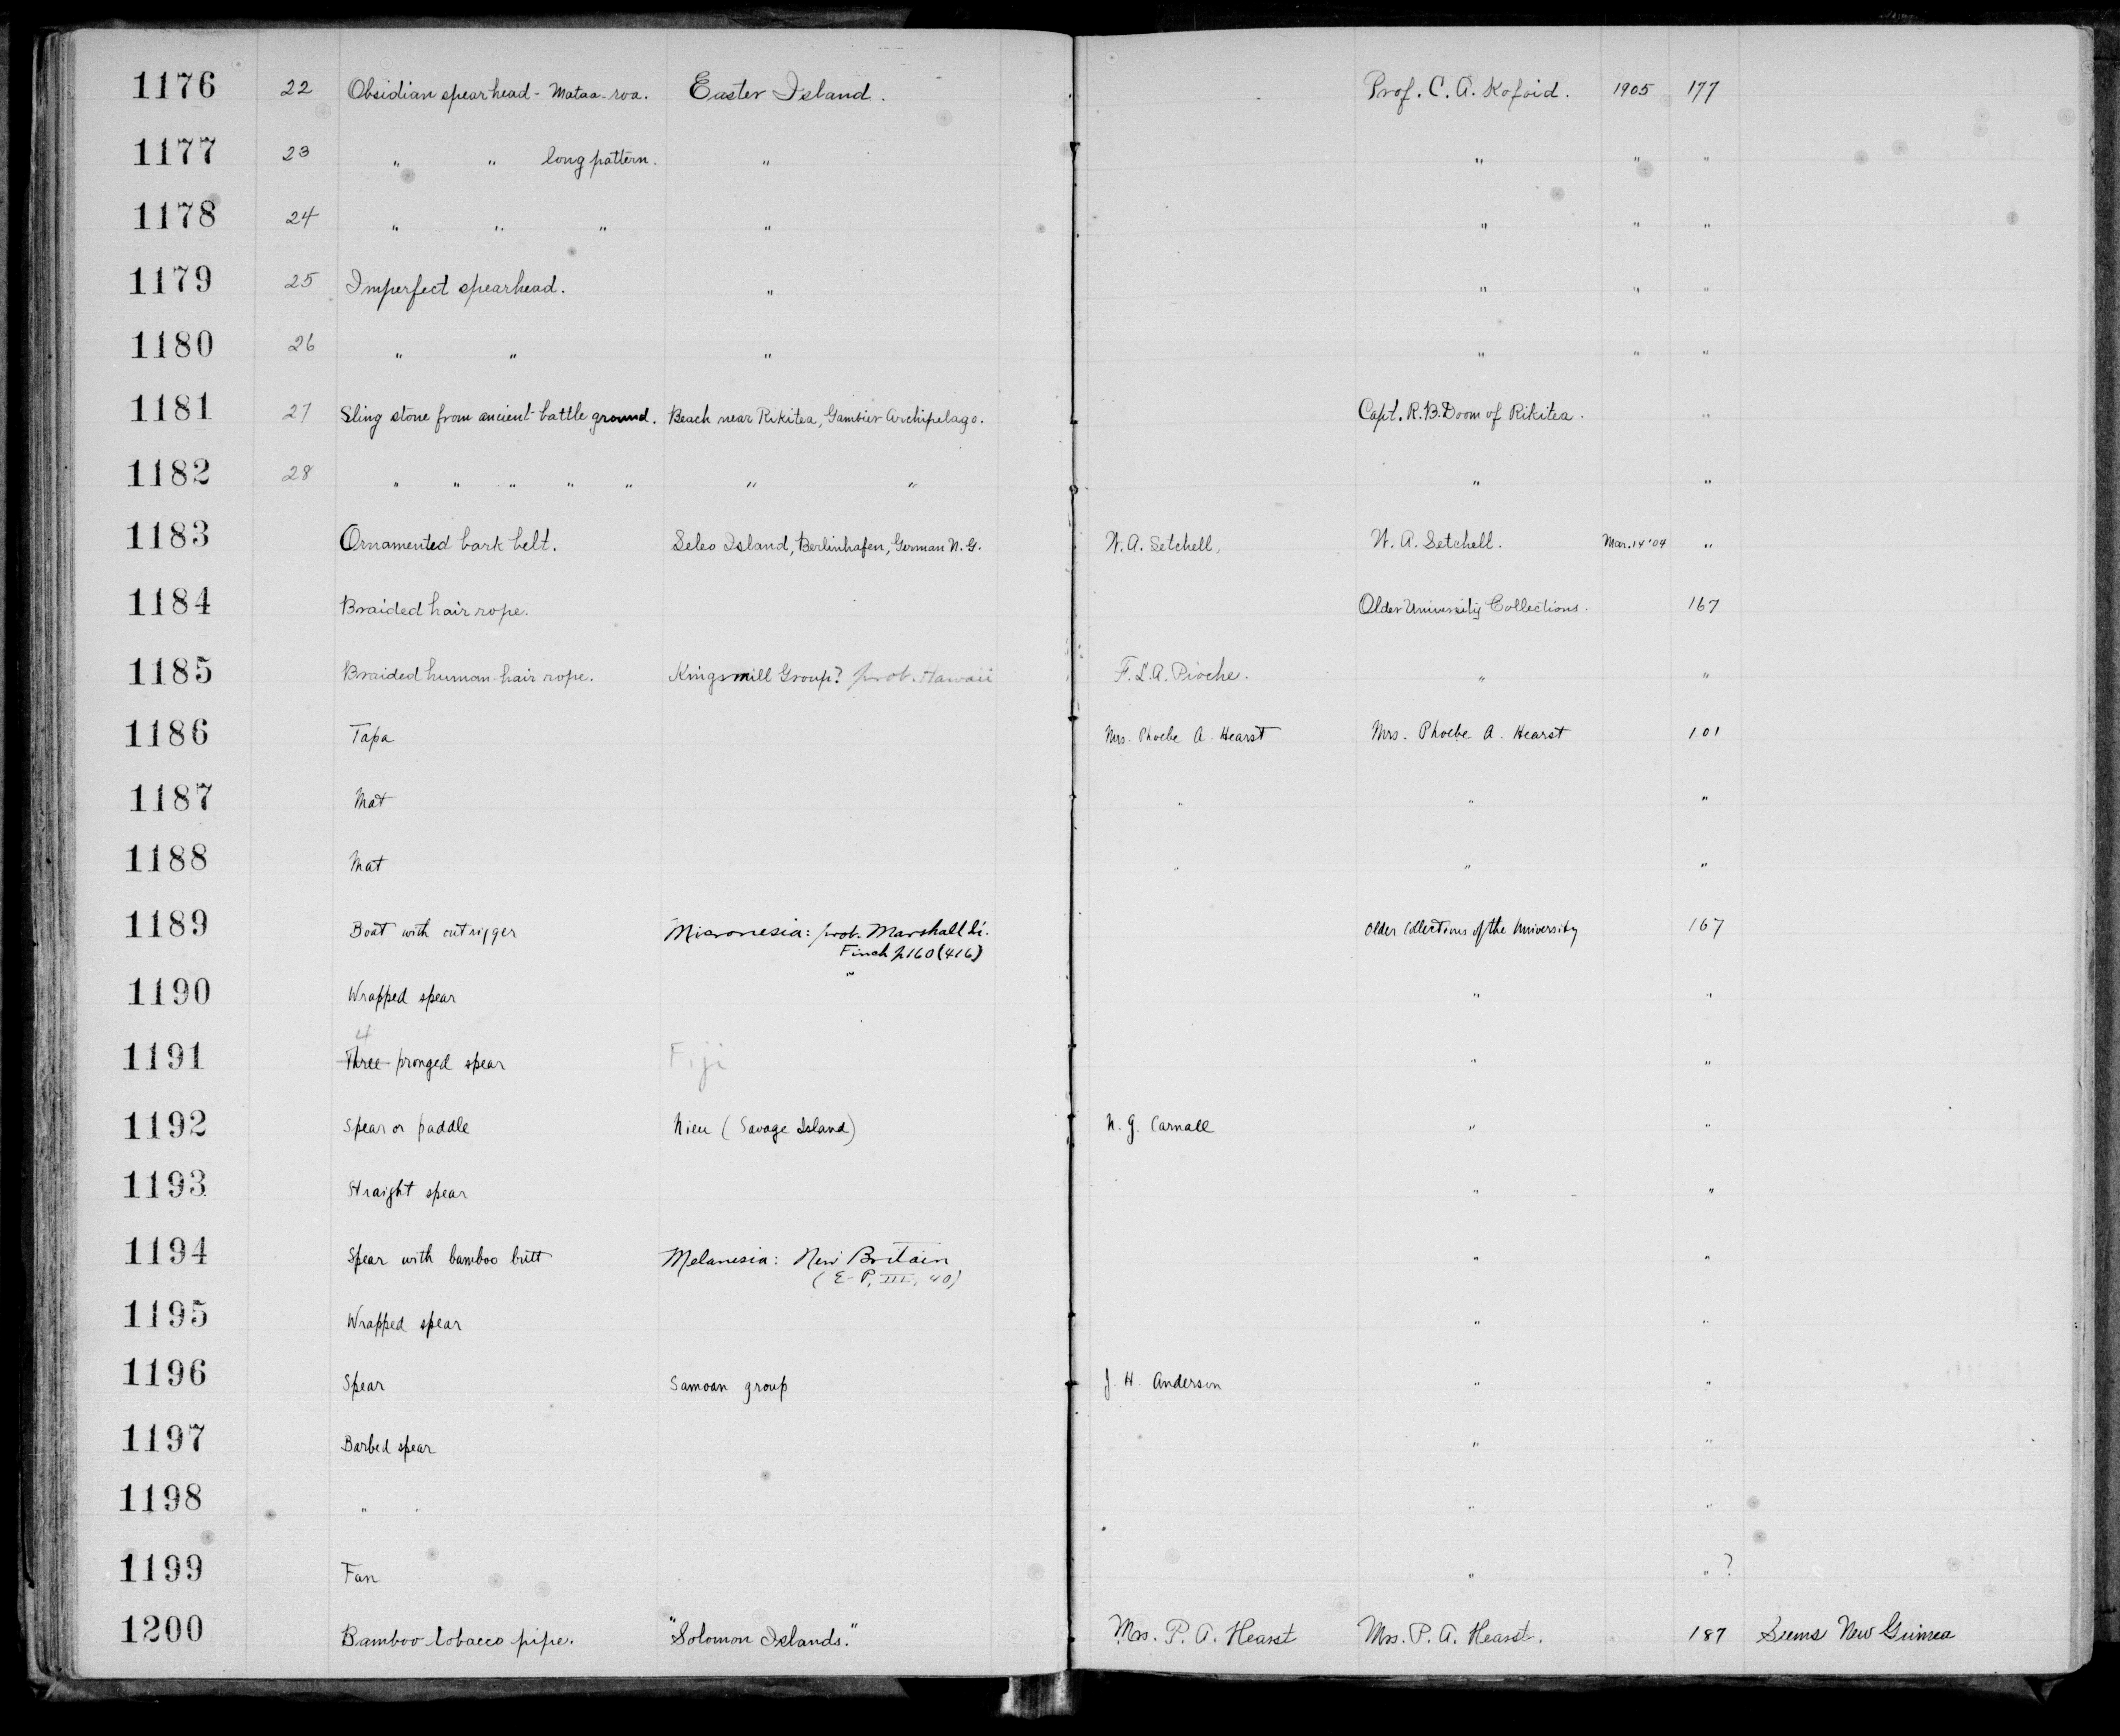 1176 22 Obsidian spearhead - Mataa-roa. Easter Island. Prof. C. A. Kofoid. 1905 177
1177 23 " " long pattern. " " " "
1178 24 " " " " " " "
1179 25 Imperfect spearhead. " " " "
1180 26 " " " " " "
1181 27 Sling stone from ancient battle ground. Beach near Rikitea, Gambier Archipelago. Capt. R. B. Doom of Rikitea. "
1182 28 " " " " " " " " "
1183 Ornamented bark belt. Seleo Island, Berlinhafen, German N. G. W. A. Setchell, W. A. Setchell. Mar. 14 '04 "
1184 Braided hair rope. Older University Collections. 167
1185 Braided human-hair rope. Kingsmill Group? prob. Hawaii F. L. A. Pioche. " "
1186 Tapa Mrs. Phoebe A. Hearst Mrs. Phoebe A. Hearst 101
1187 Mat " " "
1188 Mat " " "
1189 Boat with outrigger Micronesia: prob. Marshall Is. Older Collections of the University 167
Finch p160 (416)
1190 Wrapped spear " " "
4
1191 Three-pronged spear Fiji " "
1192 Spear or paddle Nieu (Savage Island) N. G. Carnall " "
1193 Straight spear " "
1194 Spear with bamboo butt Melanesia: New Britain " "
(E-P, III, 40)
1195 Wrapped spear " "
1196 Spear Samoan group J. H. Anderson " "
1197 Barbed spear " "
1198 " " " "
1199 Fan " " ?
1200 Bamboo tobacco pipe. "Solomon Islands." Mrs. P. A. Hearst Mrs. P. A. Hearst. 187 Seems New Guinea